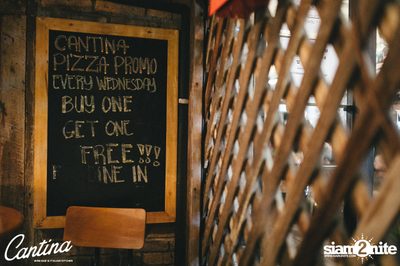 CANTINA
PIZZA PROMO
EVERY WEDNESDAY
BUY ONE
GET ONE
FREE!!!
IN
Cantina
siam2nite